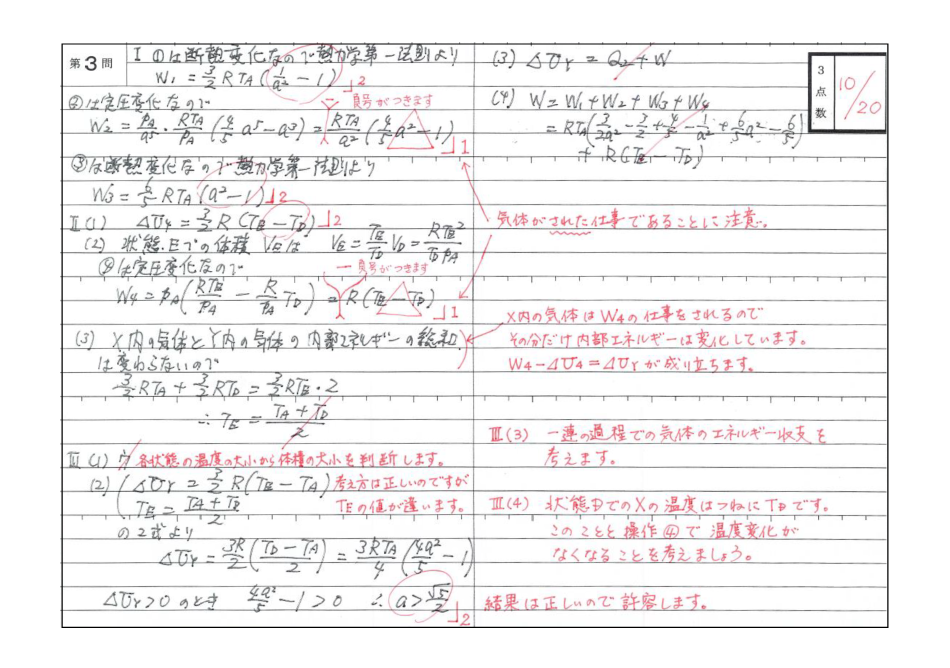 第3問
Ⅰ ①は断熱変化なので熱力学第一法則より
W₁ = 3/2 RT_A (1/a² − 1) 2
②は定圧変化なので
− 負号がつきます
W₂ = p_A/a⁵ · RT_A/p_A (4/5 a⁵ − a³) = RT_A/a² (4/5 a² − 1) 1
③は断熱変化なので熱力学第一法則より
W₃ = 6/5 RT_A (a² − 1) 2
Ⅱ(1) ΔU₄ = 3/2 R (T_E − T_D) 2
(2) 状態Eでの体積 V_Eは V_E = T_E/T_D V_D = RT_E²/T_D p_A
④は定圧変化なので
− 負号がつきます
W₄ = p_A (RT_E/p_A − R/p_A T_D) = R (T_E − T_D) 1
(3) X内の気体とY内の気体の内部エネルギーの総和
は変わらないので
3/2 RT_A + 3/2 RT_D = 3/2 RT_E · 2
∴ T_E = T_A + T_D / 2
Ⅲ (1) ウ 各状態の温度の大小から体積の大小を判断します。
(2) ΔU_Y = 3/2 R (T_E − T_A) 考え方は正しいのですが
T_E = T_A + T_D / 2 T_Eの値が違います。
の2式より
ΔU_Y = 3R/2 (T_D − T_A / 2) = 3RT_A/4 (4a²/5 − 1)
ΔU_Y > 0 のとき 4a²/5 − 1 > 0 ∴ a > √5/2 2
(3) ΔU_Y = Q₂ + W
(4) W = W₁ + W₂ + W₃ + W₄
= RT_A (3/2a² − 3/2 + 4/5 − 1/a² + 6/5 a² − 6/5)
+ R (T_E − T_D)
3点数
10/20
気体がされた仕事であることに注意。
X内の気体はW₄の仕事をされるので
その分だけ内部エネルギーは変化しています。
W₄ − ΔU₄ = ΔU_Y が成り立ちます。
Ⅲ(3) 一連の過程での気体のエネルギー収支を
考えます。
Ⅲ(4) 状態DでのXの温度はつねにT_Dです。
このことと操作④で温度変化が
なくなることを考えましょう。
結果は正しいので許容します。